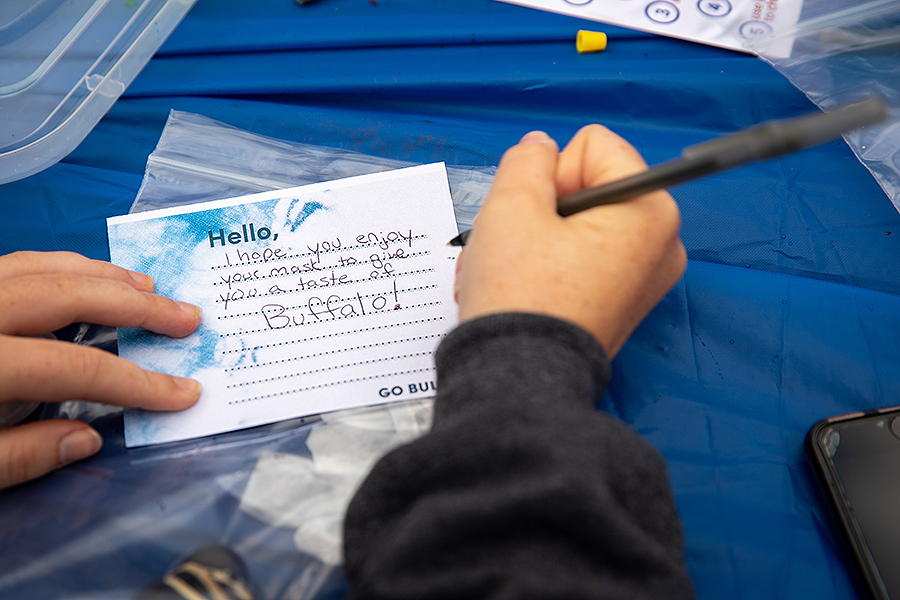 3 4
5
Hello,
I hope you enjoy
your mask to give
you a taste of
Buffalo!
GO BUL